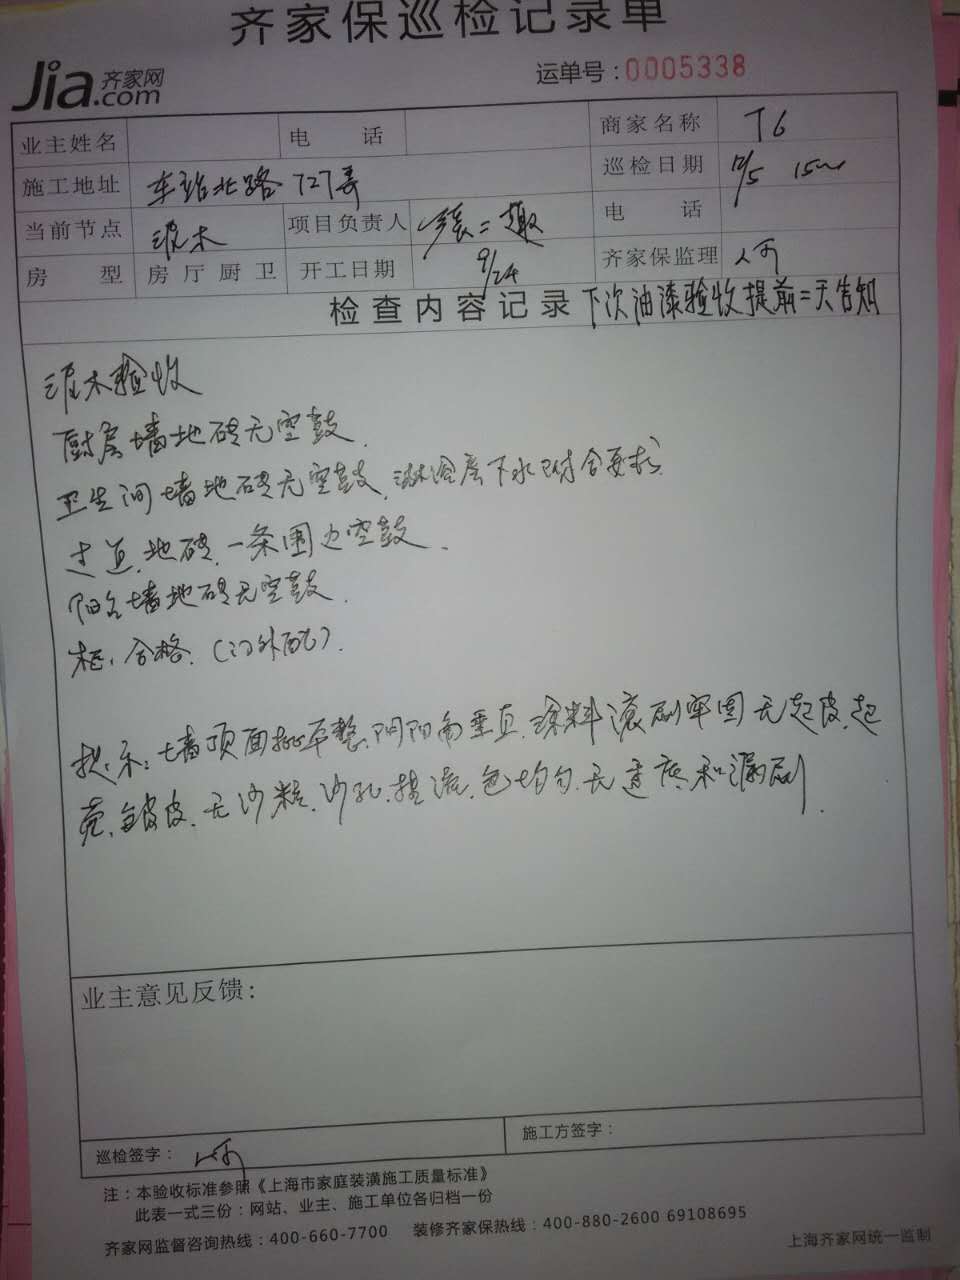 齐家保巡检记录单
Jia.com 齐家网
运单号：0005338
业主姓名 电话 商家名称 T6
施工地址 车站北路727弄 巡检日期 12/5
当前节点 泥木 项目负责人 电话
房型 房厅厨卫 开工日期 9/24 齐家保监理
检查内容记录 下次油漆验收提前二天告知
泥木验收
厨房墙地砖无空鼓.
卫生间墙地砖无空鼓,淋浴房下水符合要求
过道,地砖,一条围边空鼓.
阳台墙地砖无空鼓.
柜,合格.(门外配).
提示:墙顶面批平整,阴阳角垂直,涂料滚刷牢固无起皮,起
壳,皱皮,无沙粒,沙孔,接流,色均匀,无透底和漏刷.
业主意见反馈：
巡检签字： 施工方签字：
注：本验收标准参照《上海市家庭装潢施工质量标准》
此表一式三份：网站、业主、施工单位各归档一份
齐家网监督咨询热线：400-660-7700 装修齐家保热线：400-880-2600 69108695
上海齐家网统一监制